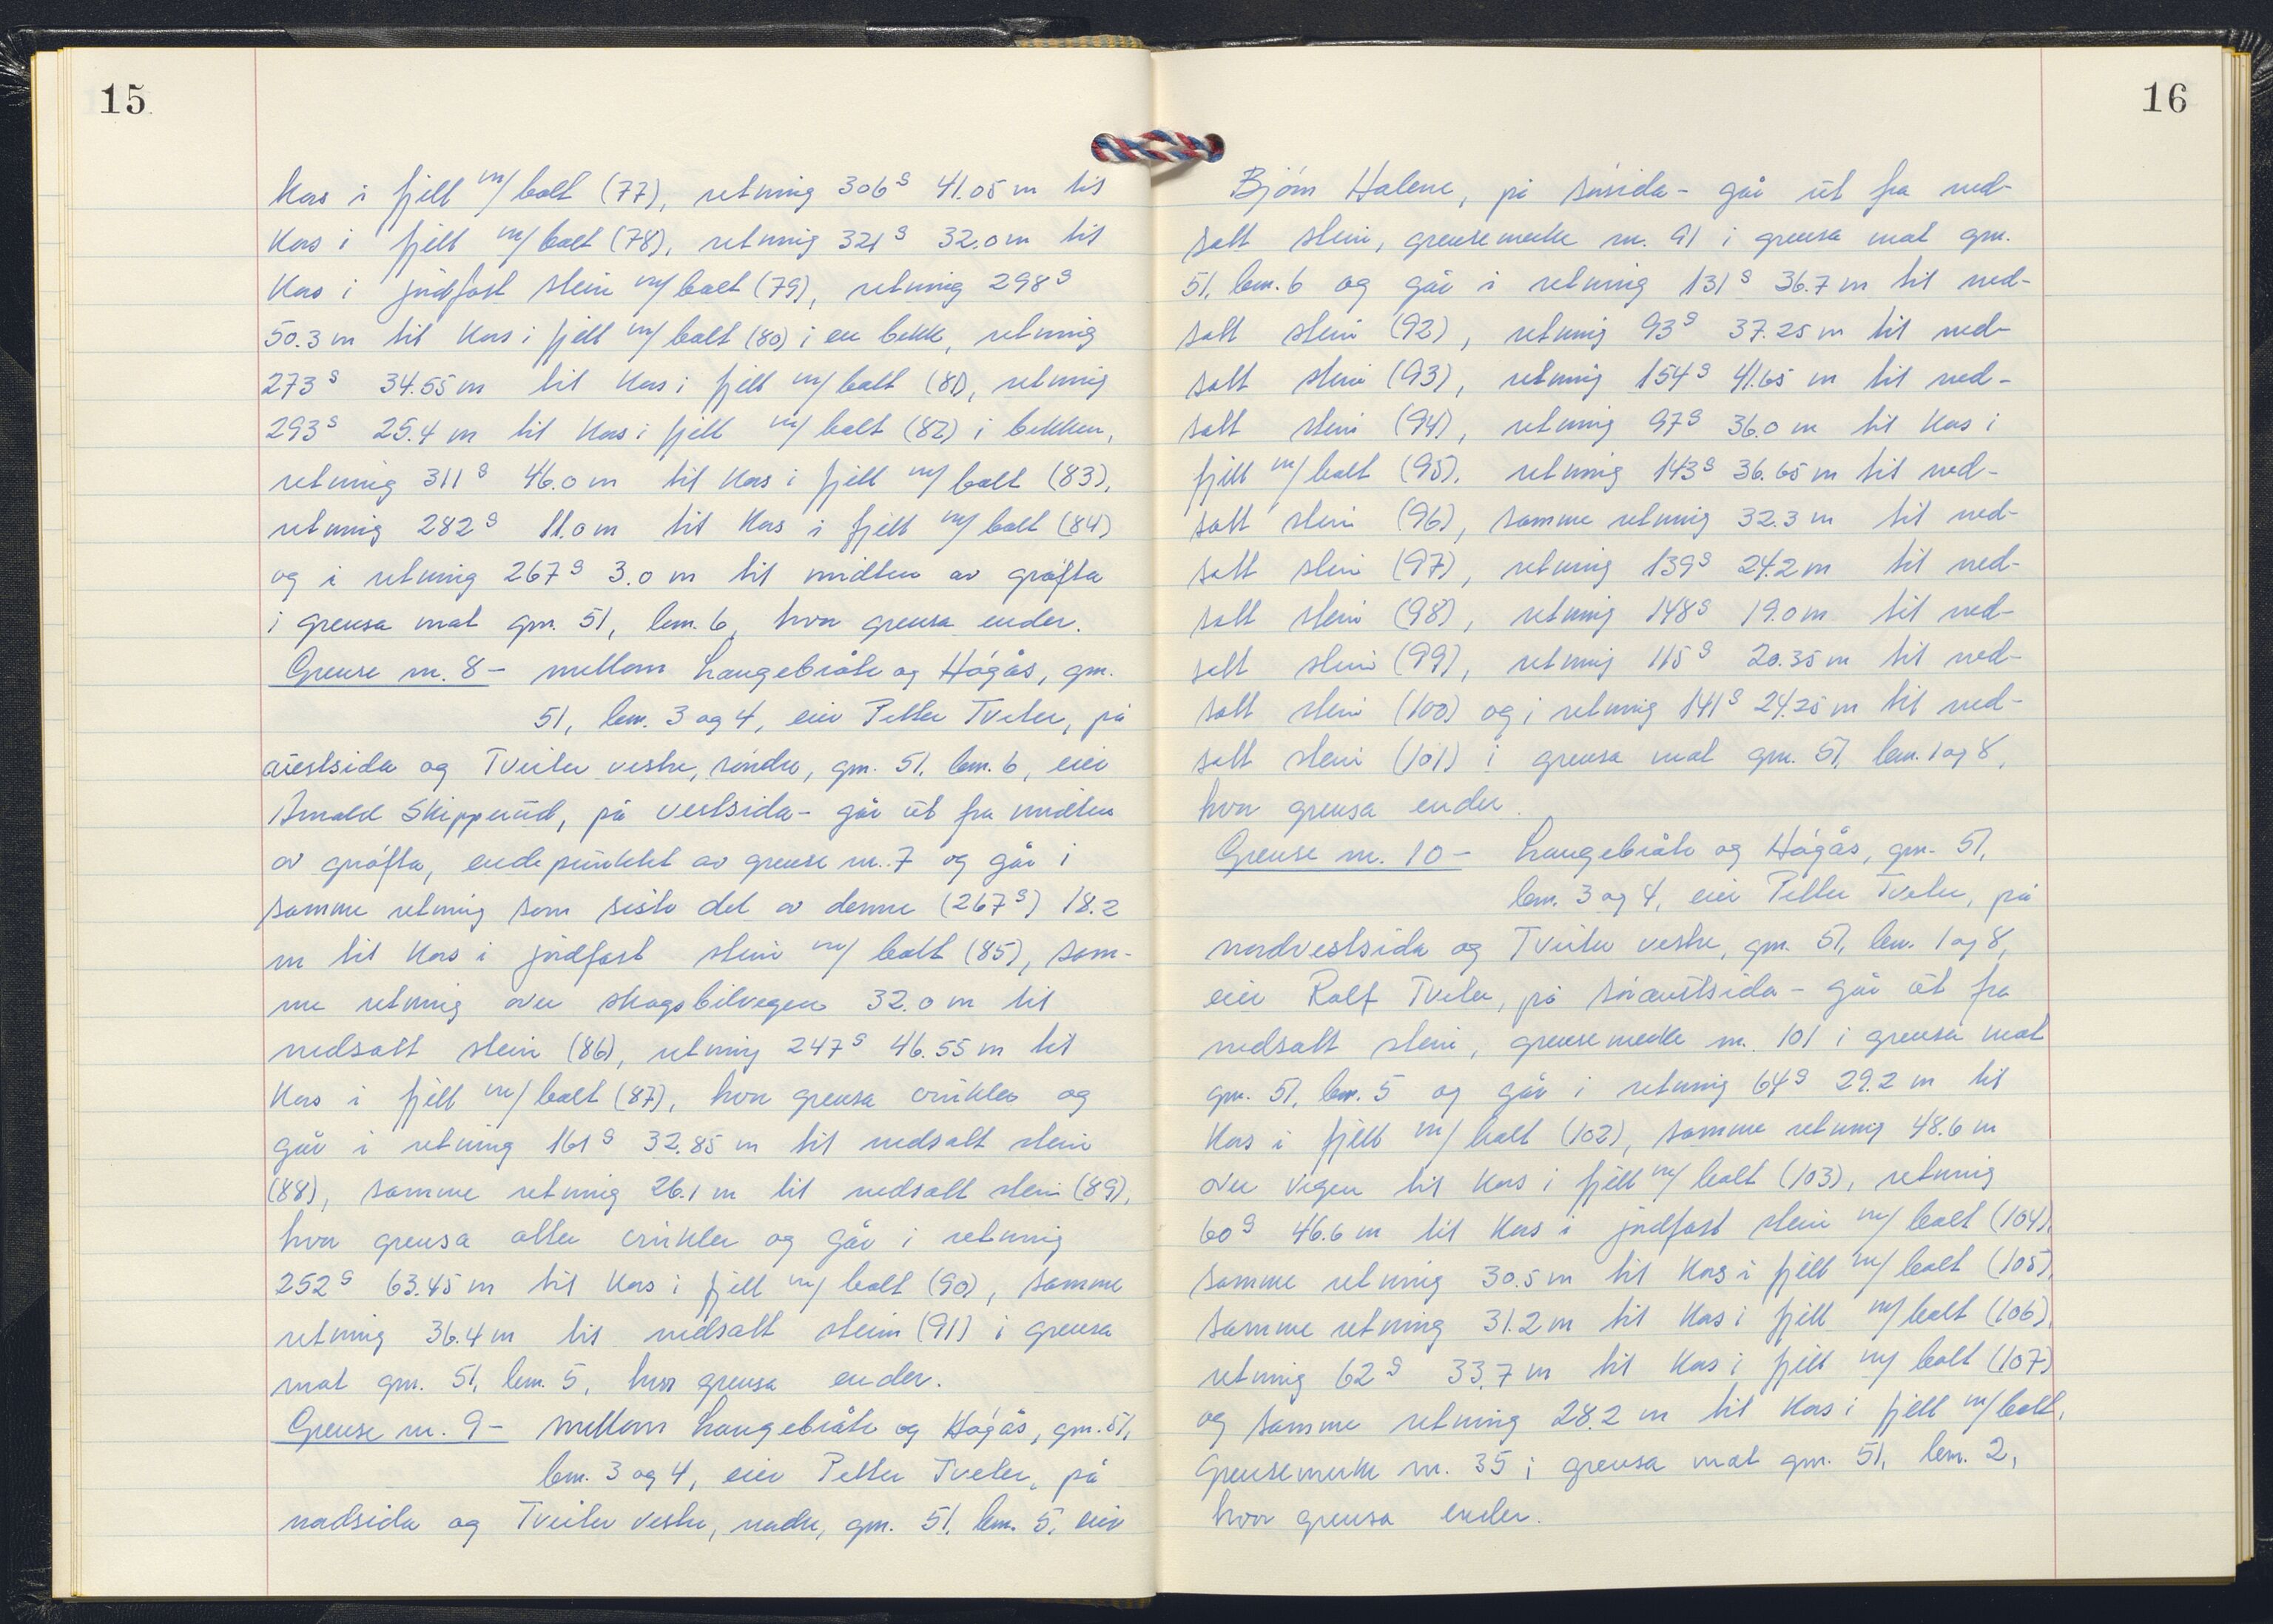 15
kors i fjell m/bolt (77), retning 306g 41.05 m til
kors i fjell m/bolt (78), retning 321g 32.0 m til
kors i jordfast stein m/bolt (79), retning 298g
50.3 m til kors i fjell m/bolt (80) i en bekk, retning
273g 34.55 m til kors i fjell m/bolt (81), retning
293g 25.4 m til kors i fjell m/bolt (82) i bekken,
retning 311g 46.0 m til kors i fjell m/bolt (83),
retning 282g 11.0 m til kors i fjell m/bolt (84)
og i retning 267g 3.0 m til midten av grøfta
i grensa mot gnr. 51, bnr. 6, hvor grensa ender.
Grense nr. 8 - mellom Langebråte og Høgås, gnr.
51, bnr. 3 og 4, eier Petter Tveter, på
austsida og Tveiter vestre, søndre, gnr. 51, bnr. 6, eier
Arnold Skipperud, på vestsida - går ut fra midten
av grøfta, endepunktet av grense nr. 7 og går i
samme retning som siste del av denne (267g) 18.2
m til kors i jordfast stein m/ bolt (85), sam-
me retning over skogsbilvegen 32.0 m til
nedsatt stein (86), retning 247g 46.55 m til
kors i fjell m/bolt (87), hvor grensa vinkler og
går i retning 161g 32.85 m til nedsatt stein
(88), samme retning 26.1 m til nedsatt stein (89),
hvor grensa atter vinkler og går i retning
252g 63.45 m til kors i fjell m/bolt (90), samme
retning 36.4 m til nedsatt stein (91) i grensa
mot gnr. 51, bnr. 5, hvor grensa ender.
Grense nr. 9 - mellom Langebråte og Høgås, gnr. 51,
bnr. 3 og 4, eier Petter Tveter, på
nordsida og Tveiter vestre, nordre, gnr. 51, bnr. 5, eier
16
Bjørn Halene, på sørsida - går ut fra ned-
satt stein, grensemerke nr. 91 i grensa mot gnr.
51, bnr. 6 og går i retning 131g 36.7 m til ned-
satt stein (92), retning 93g 37.25 m til ned-
satt stein (93), retning 154g 41.65 m til ned-
satt stein (94), retning 97g 36.0 m til kors i
fjell m/bolt (95), retning 143g 36.65 m til ned-
satt stein (96), samme retning 32.3 m til ned-
satt stein (97), retning 139g 24.2 m til ned-
satt stein (98), retning 148g 19.0 m til ned-
satt stein (99), retning 115g 20.35 m til ned-
satt stein (100) og i retning 141g 24.25 m til ned-
satt stein (101) i grensa mot gnr. 51, bnr. 1 og 8,
hvor grensa ender.
Grense nr. 10 - Langebråte og Høgås, gnr. 51,
bnr. 3 og 4, eier Petter Tveter, på
nordvestsida og Tveiter vestre, gnr. 51, bnr. 1 og 8,
eier Rolf Tveter, på søraustsida - går ut fra
nedsatt stein, grensemerke nr. 101 i grensa mot
gnr. 51, bnr. 5 og går i retning 64g 29.2 m til
kors i fjell m/bolt (102), samme retning 48.6 m
over vegen til kors i fjell m/bolt (103), retning
60g 46.6 m til kors i jordfast stein m/bolt (104),
samme retning 30.5 m til kors i fjell m/bolt (105),
samme retning 31.2 m til kors i fjell m/bolt (106),
retning 62g 33.7 m til kors i fjell m/bolt (107)
og samme retning 28.2 m til kors i fjell m/bolt,
grensemerke nr. 35 i grensa mot gnr. 51, bnr. 2,
hvor grensa ender.